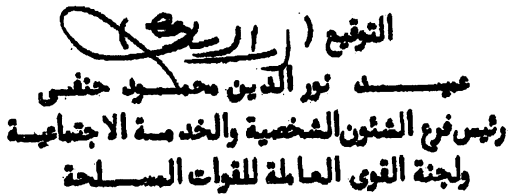 التوقيع (           )
عميد نور الدين محمود حنفى
رئيس فرع الشئون الشخصية والخدمة الاجتماعية
ولجنة القوى العاملة للقوات المسلحة